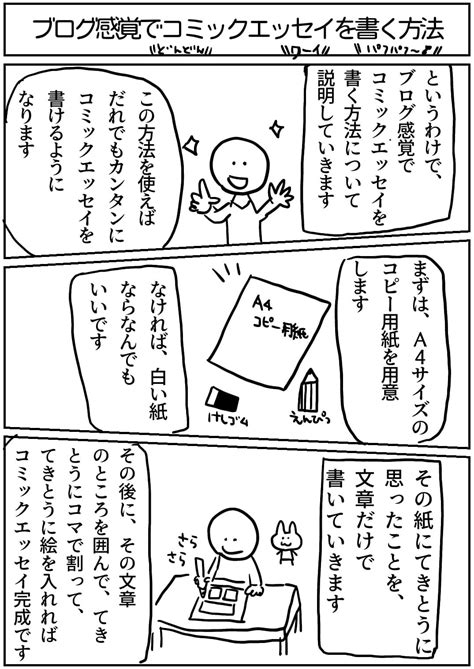 ブログ感覚でコミックエッセイを書く方法
どんどん
ワーイ
パフパフ～♪
というわけで、
ブログ感覚で
コミックエッセイを
書く方法について
説明していきます
この方法を使えば
だれでもカンタンに
コミックエッセイを
書けるように
なります
まずは、A4サイズの
コピー用紙を用意
します
A4
コピー用紙
けしゴム
えんぴつ
なければ、白い紙
ならなんでも
いいです
その紙にてきとうに
思ったことを、
文章だけで
書いていきます
さら
さら
その後に、その文章
のところを囲んで、てき
とうにコマで割って、
てきとうに絵を入れれば
コミックエッセイ完成です